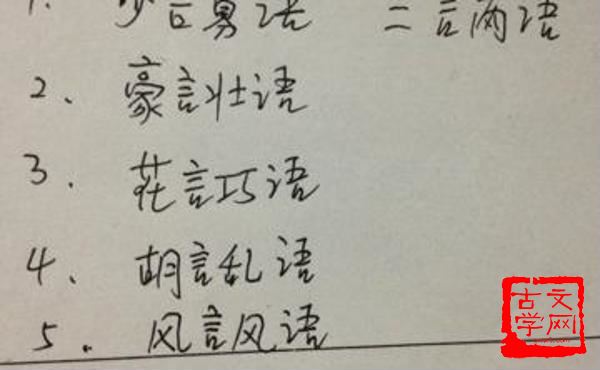 1. 少言寡语 三言两语
2、豪言壮语
3. 花言巧语
4、胡言乱语
5. 风言风语
古文
学网